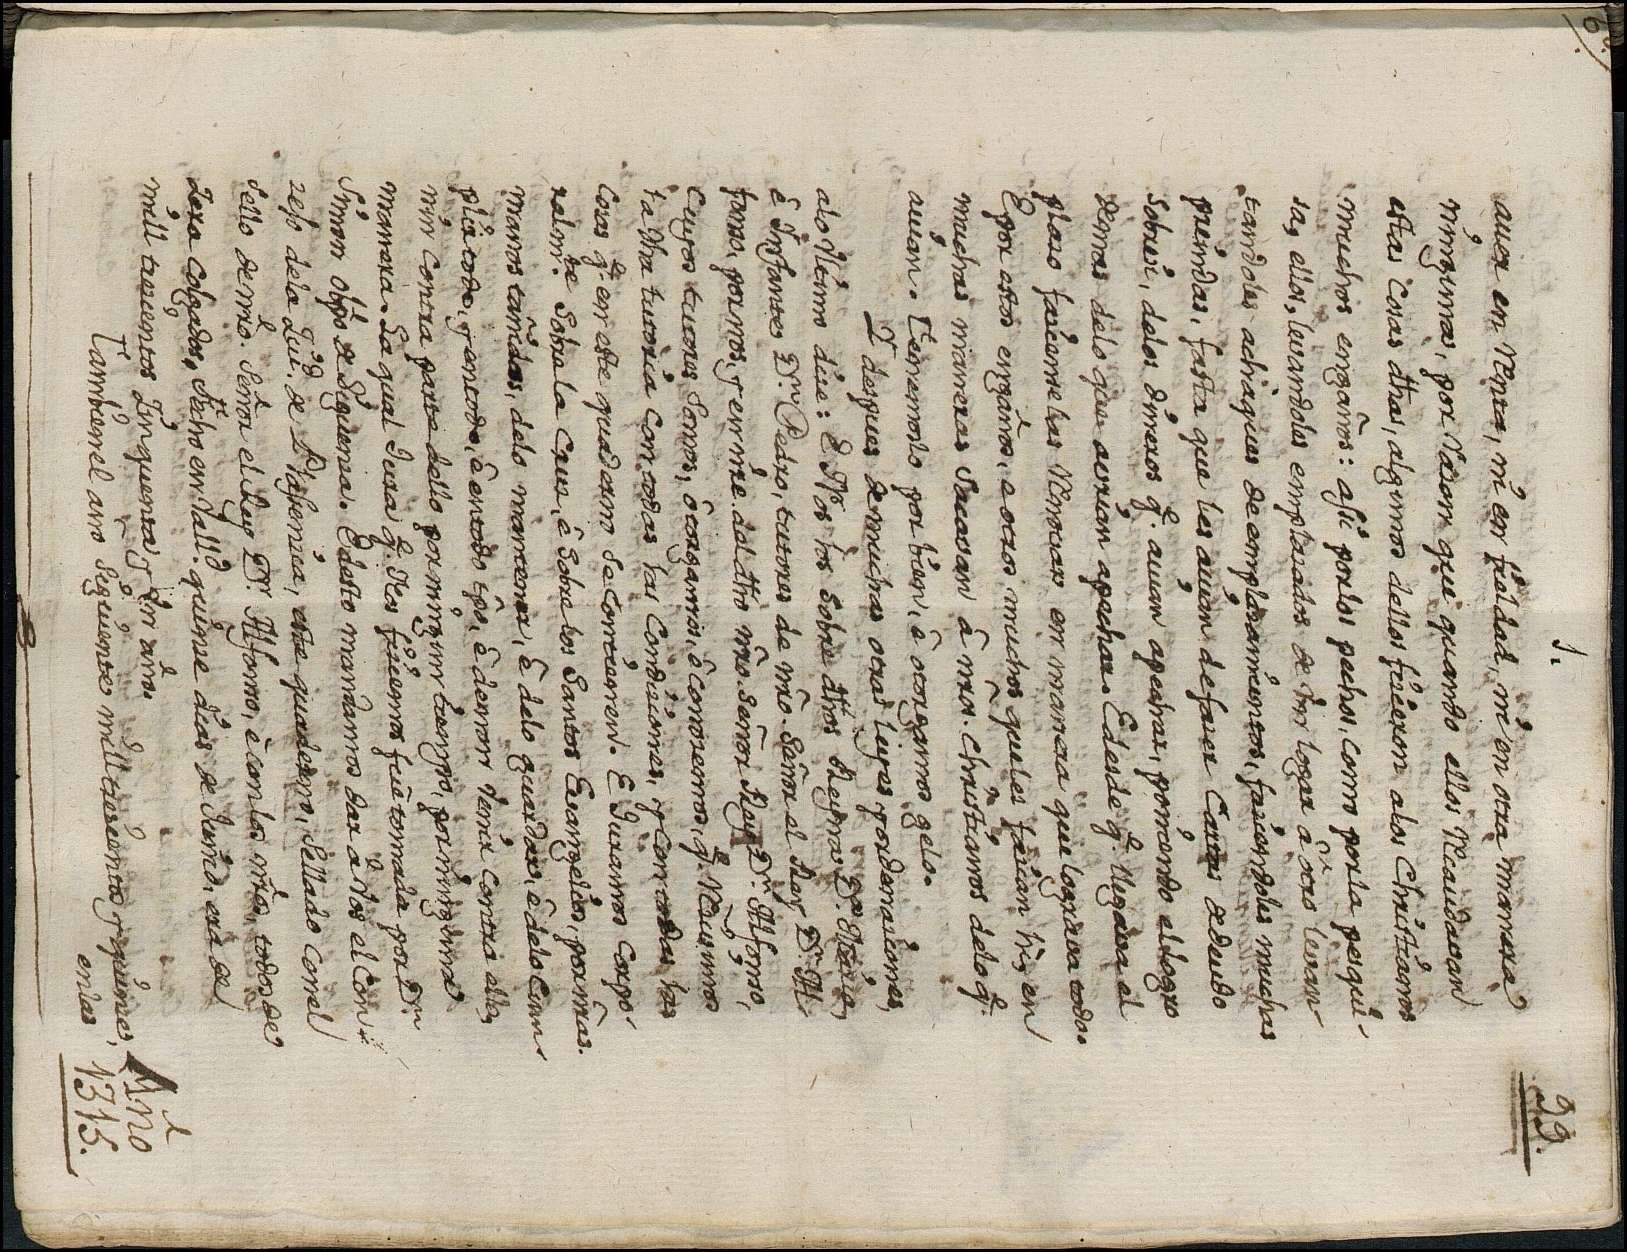 J.
33.
auer en Renta, ni en fieldad, ni en otra manera
ningunas, por raçon que quando ellos Recaudauan
estas Cosas dhas, algunos dellos ficieron alos Christianos
muchos engaños: assi porlos pechos, como porla pesqui-
sa, ellos, leuandolos emplaçados de un logar â otro leuan-
tandoles achaques de emplaçamientos, faciendoles muchas
priendas, fasta que les auian de facer Cartas de deudo
sobresi, delos dineros q.e auian apechar, poniendo el logro
demas delo que avrian apechar. E desde q.e llegaua el
plaço facienselas Renouar en manera que lograua todo.
E por estos engaños, e otros muchos queles facian hi, en
muchas maneras Sacauan â nros. Christianos delo q.e
auian. Tenemoslo por bien, ê otorgamos gelo.
Y despues de muchas otras leyes y ordenaciones,
abo Vltimo dice: E Nos los sobre dhos Reyna D.a Maria,
ê Infantes D.n Pedro, tutores de nro. Señor el Rey D.n Al-
fonso, por nos, y en nne. del dho nro. Señor Rey D.n Alfonso,
cuyos tutores somos, ôtorgamos, ê Conoscemos, q.e Recivimos
la dha tutoria Con todas las Condiciones, y Con todas las
Cosas q.e en este quaderno se Contienen. E Juramos Corpo-
ralm.te Sobre la Cruz, ê Sobre los Santos Euangelios, por nras.
manos tañidas, delo mantener, ê delo guardar, ê delo Cum-
plir todo, y en todo, ê en todo tpo, ê de non Venir Contra ello,
nin Contra parte dello por ningun tiempo, por ninguna
manera. La qual Jura q.e Nos ficiemos fue tomada por D.n
Simon Obpo de Siguenza. E desto mandamos dar a Vos el Con-
zejo dela Ziu.d de Plasencia, este quaderno, Sellado Con el
Sello de nro. Señor el Rey D.n Alfonso, ê con los nros, todos de
Zera Colgados. Fecho en Vall.d quince dias de Junio. era de
mill trecientos Zinquenta y un años.
Tambien el año Siguiente mill trecientos y quince,
en las
Año
1315.